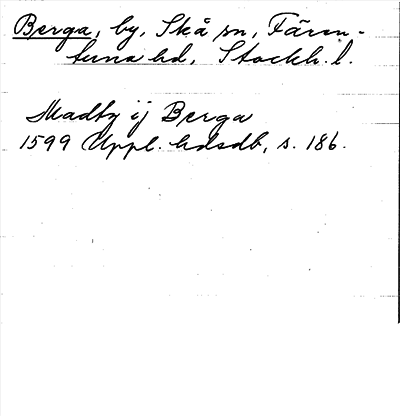 Berga, by, Skå sn, Fären-
tuna hd, Stockh. l.
Madby ij Berga
1599 Uppl. hdsdb, s. 186.